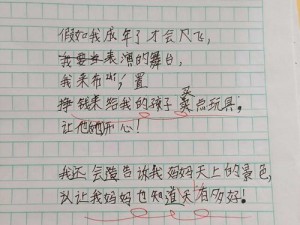 假如我成年了才会尺飞,
我要去表演的舞台,
我来布出,置
挣钱来给我的孩子买总玩具;
让他她开心!
我还会告诉我妈妈天上的景色,
以让我妈妈也知道天有多好!